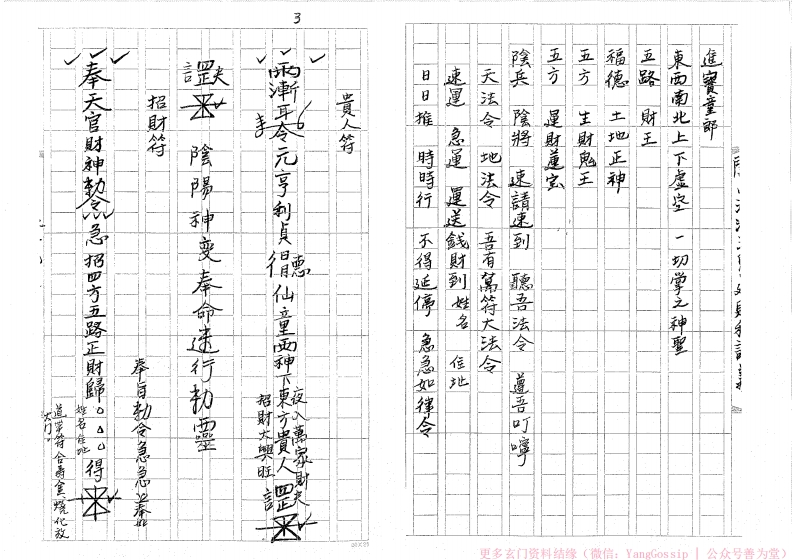 進寶童郎
東西南北上下虛空 一切掌之神聖
五路 財王
福德 土地正神
五方 生財鬼王
五方 運財蓮宗
陰兵 陰將 速請速到 聽吾法令 遵吾叮嚀
天法令 地法令 吾有萬符大法令
速運 急運 運送錢財到姓名 住地
日日推 時時行 不得延停 急急如律令
3
貴人符
漸耳令元亨利貞 仙童兩神下東方貴人
夜入萬家財
招財大興旺
陰陽神变奉命速行勅靈
招財符
奉旨勅令急急
奉天官財神勅令急招四方五路正財歸△△△得
姓名住地
道草符合壽金燒化放
大门。
更多玄门资料结缘（微信：YangGossip | 公众号善为堂）